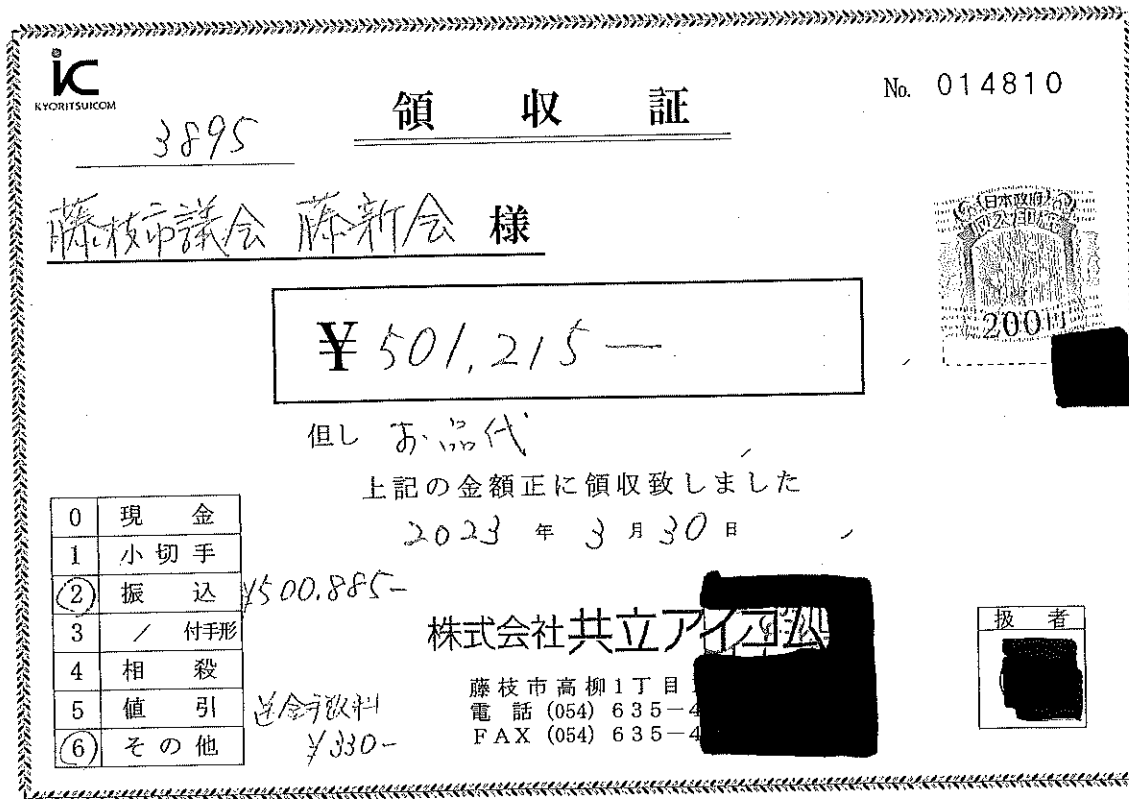 ic
KYORITSUICOM
領収証
No. 014810
3895
藤枝市議会 藤新会 様
日本政府
200円
¥501,215―
但し お品代
上記の金額正に領収致しました
2023年3月30日
0 現金
1 小切手
2 振込 ¥500.885-
3 / 付手形
4 相殺
5 値引
6 その他 送金手数料 ¥330-
株式会社共立アイコム
藤枝市高柳1丁目
電話 (054) 635-4
FAX (054) 635-4
扱者